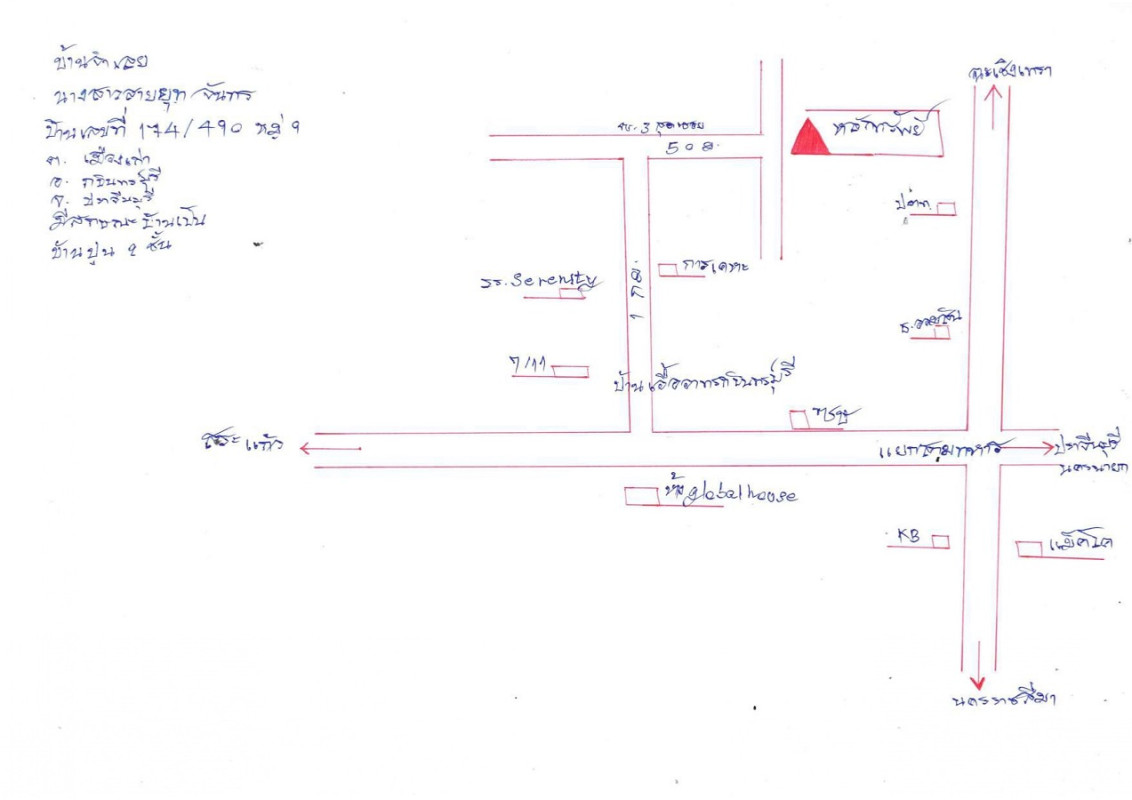 บ้านจำเลย
นางสาวสายยุท จันทร
บ้านเลขที่ 174/490 หมู่ 9
ต. เมืองเก่า
อ. กบินทร์บุรี
จ. ปราจีนบุรี
มีลักษณะบ้านเป็น
บ้านปูน 2 ชั้น
ฉะเชิงเทรา
ซ. 3 สุดซอย
50 ม.
หลักทรัพย์
ปตท.
การเคหะ
รร. Serenity
1 กม.
ธ. ออมสิน
7/11
บ้านเอื้ออาทรกบินทร์บุรี
สระแก้ว
แยกสามทหาร
ปราจีนบุรี
นครนายก
ห้าง globalhouse
KB
แม็คโค
นครราชสีมา